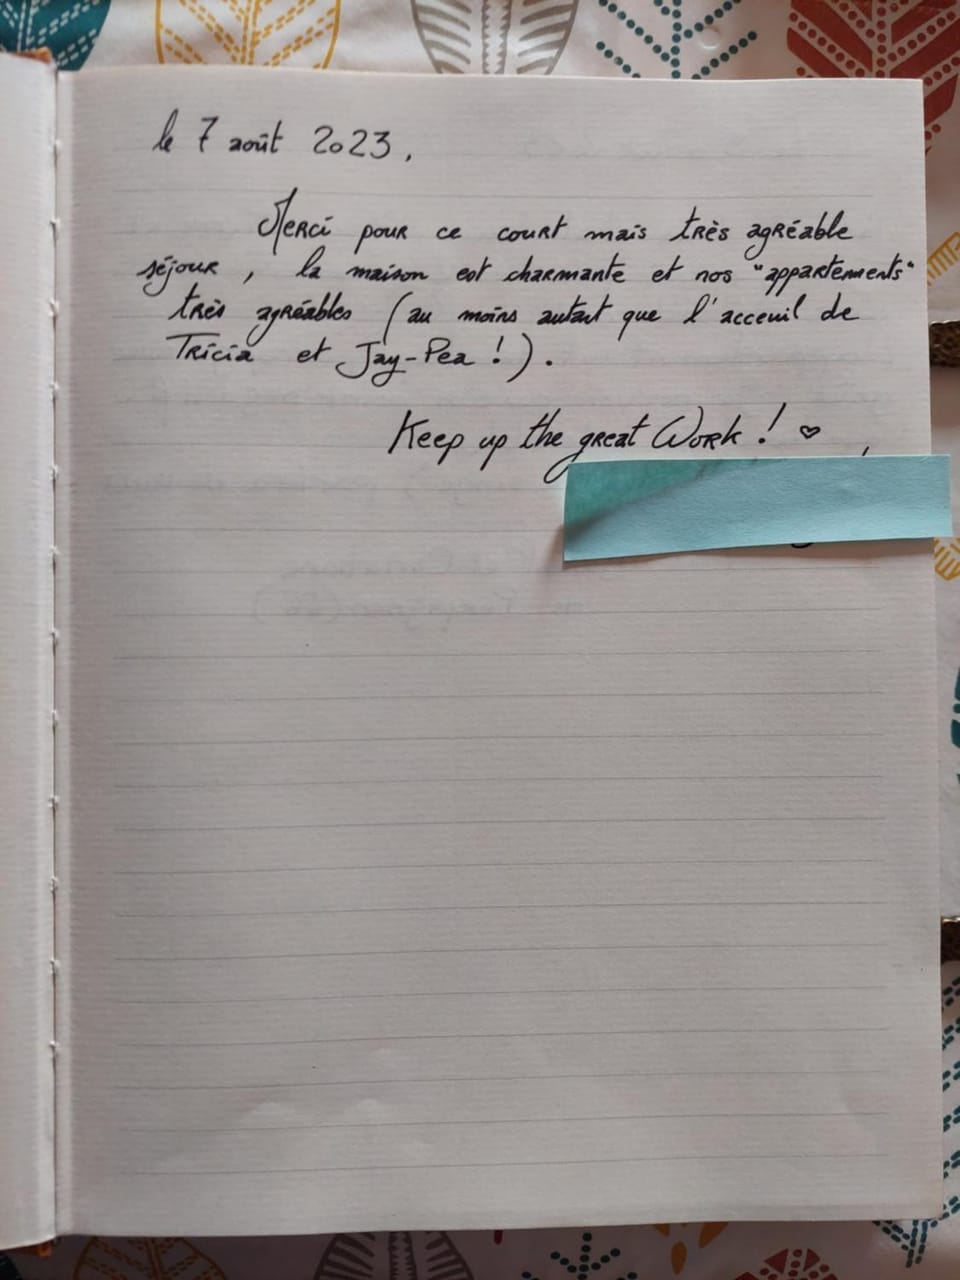 le 7 août 2023,
Merci pour ce court mais très agréable
séjour, la maison est charmante et nos "appartements"
très agréables (au moins autant que l'acceuil de
Tricia et Jay-Pea !).
Keep up the great Work ! ♡